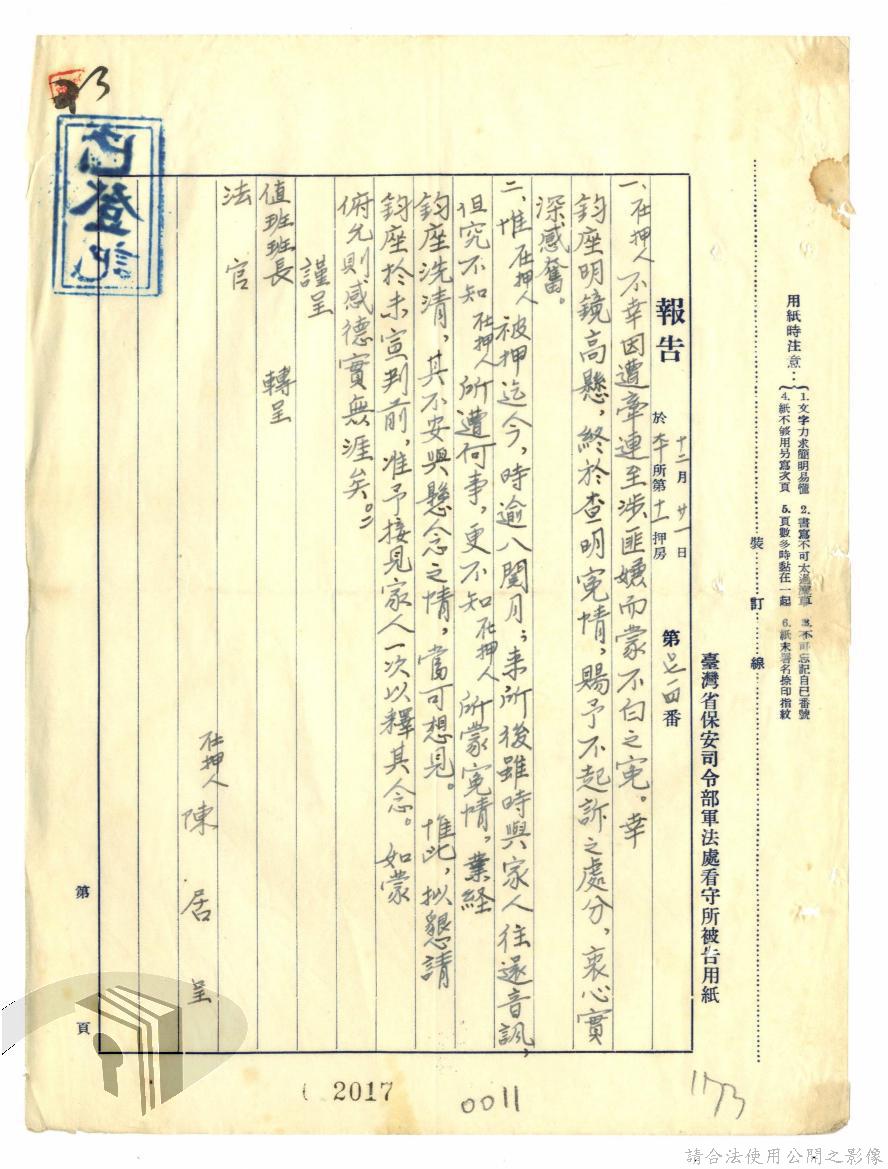 用紙時注意：
1.文字力求簡明易懂 2.書寫不可太過潦草 3.不可忘記自已番號
4.紙不够用另寫次頁 5.頁數多時黏在一起 6.紙末署名捺印指紋
裝訂線
臺灣省保安司令部軍法處看守所被告用紙
報告 十二月廿一日 於本所第十一押房 第 番
一、在押人不幸因遭牽連至涉匪嫌而蒙不白之寃。幸
鈞座明鏡高懸，終於查明寃情，賜予不起訴之處分，衷心實
深感奮。
二、惟在押人被押迄今，時逾八閱月；來所後雖時與家人往還音訊，
但究不知在押人所遭何事，更不知在押人所蒙寃情，業経
鈞座洗清，其不安與懸念之情，當可想見。惟此，拟懇請
鈞座於未宣判前，准予接見家人一次以釋其念。如蒙
俯允則感德實無涯矣。
謹呈
值班班長 轉呈
法官
在押人 陳居 呈
第 頁
2017
0011
1173
請合法使用公開之影像